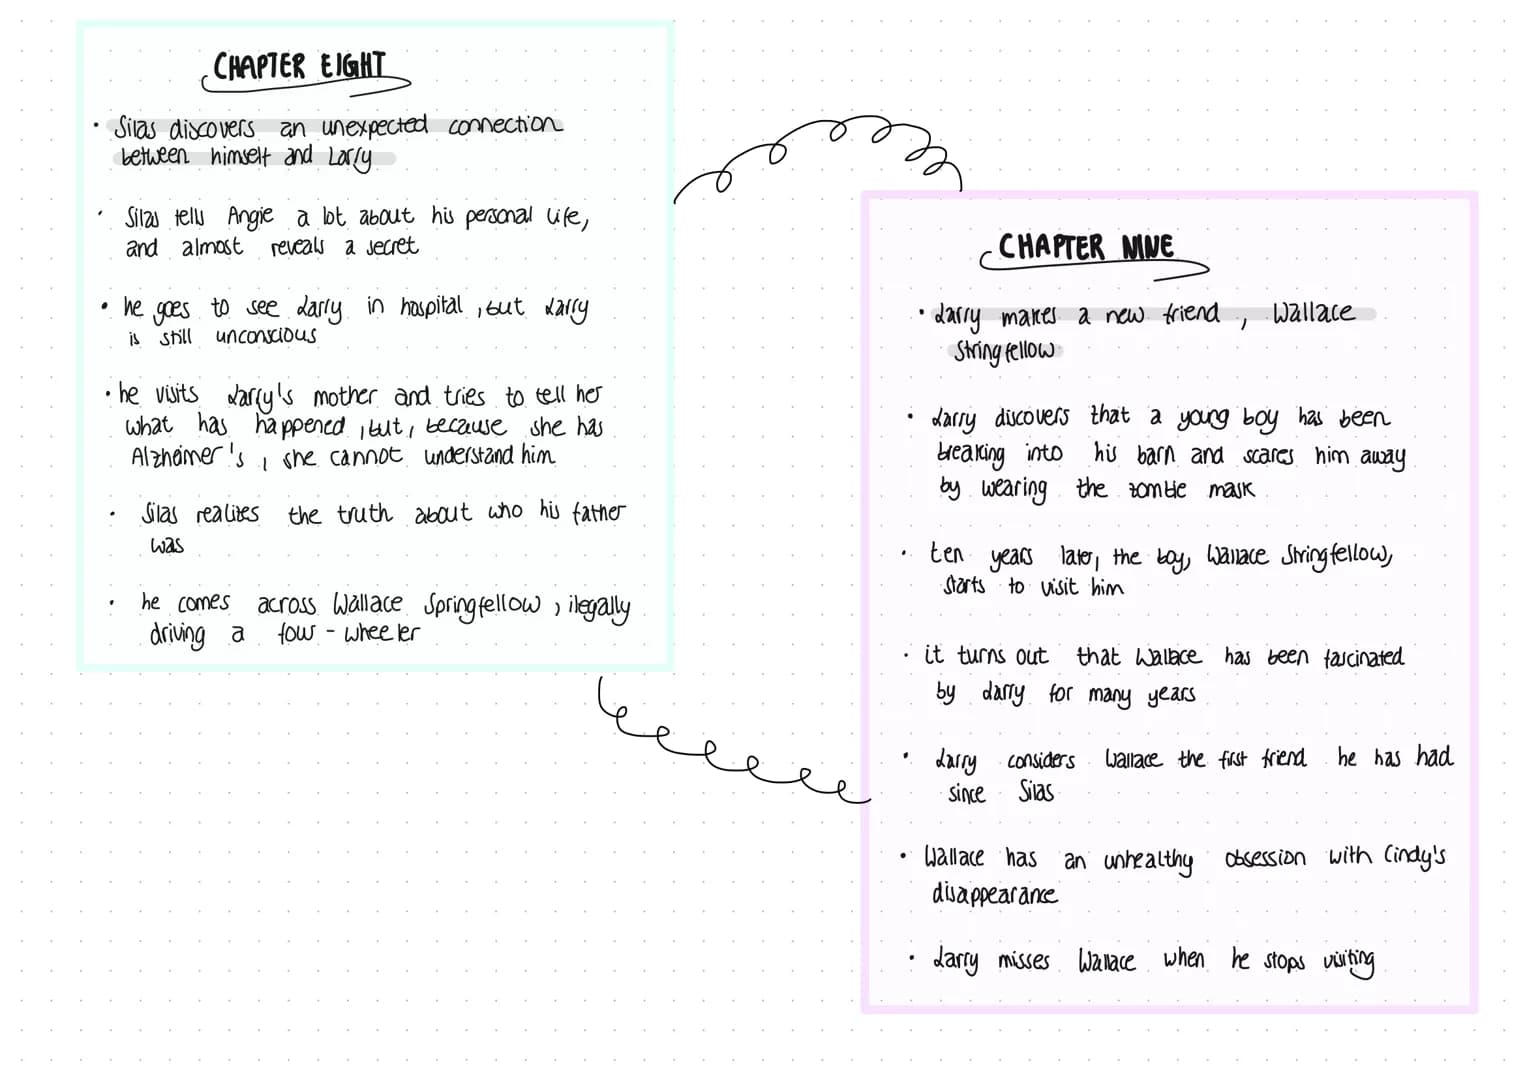 CHAPTER EIGHT
• Silas discovers an unexpected connection
between himself and Larry
• Silas tells Angie a lot about his personal life,
and almost reveals a secret
• he goes to see Larry in hospital, but Larry
is still unconscious
• he visits Larry's mother and tries to tell her
what has happened, but, because she has
Alzheimer's, she cannot understand him
• Silas realises the truth about who his father
was
• he comes across Wallace Springfellow, ilegally
driving a four-wheeler
CHAPTER NINE
• Larry makes a new friend, Wallace
Stringfellow
• Larry discovers that a young boy has been
breaking into his barn and scares him away
by wearing the zombie mask
• ten years later, the boy, Wallace Stringfellow,
starts to visit him
• it turns out that Wallace has been fascinated
by Larry for many years
• Larry considers Wallace the first friend he has had
since Silas
• Wallace has an unhealthy obsession with Cindy's
disappearance
• Larry misses Wallace when he stops visiting